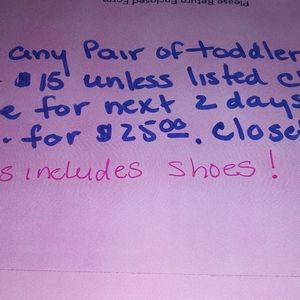 Please Return Enclosed Form
any Pair of toddler
$15 unless listed
for next 2 days
for $25.00. Close
includes shoes!